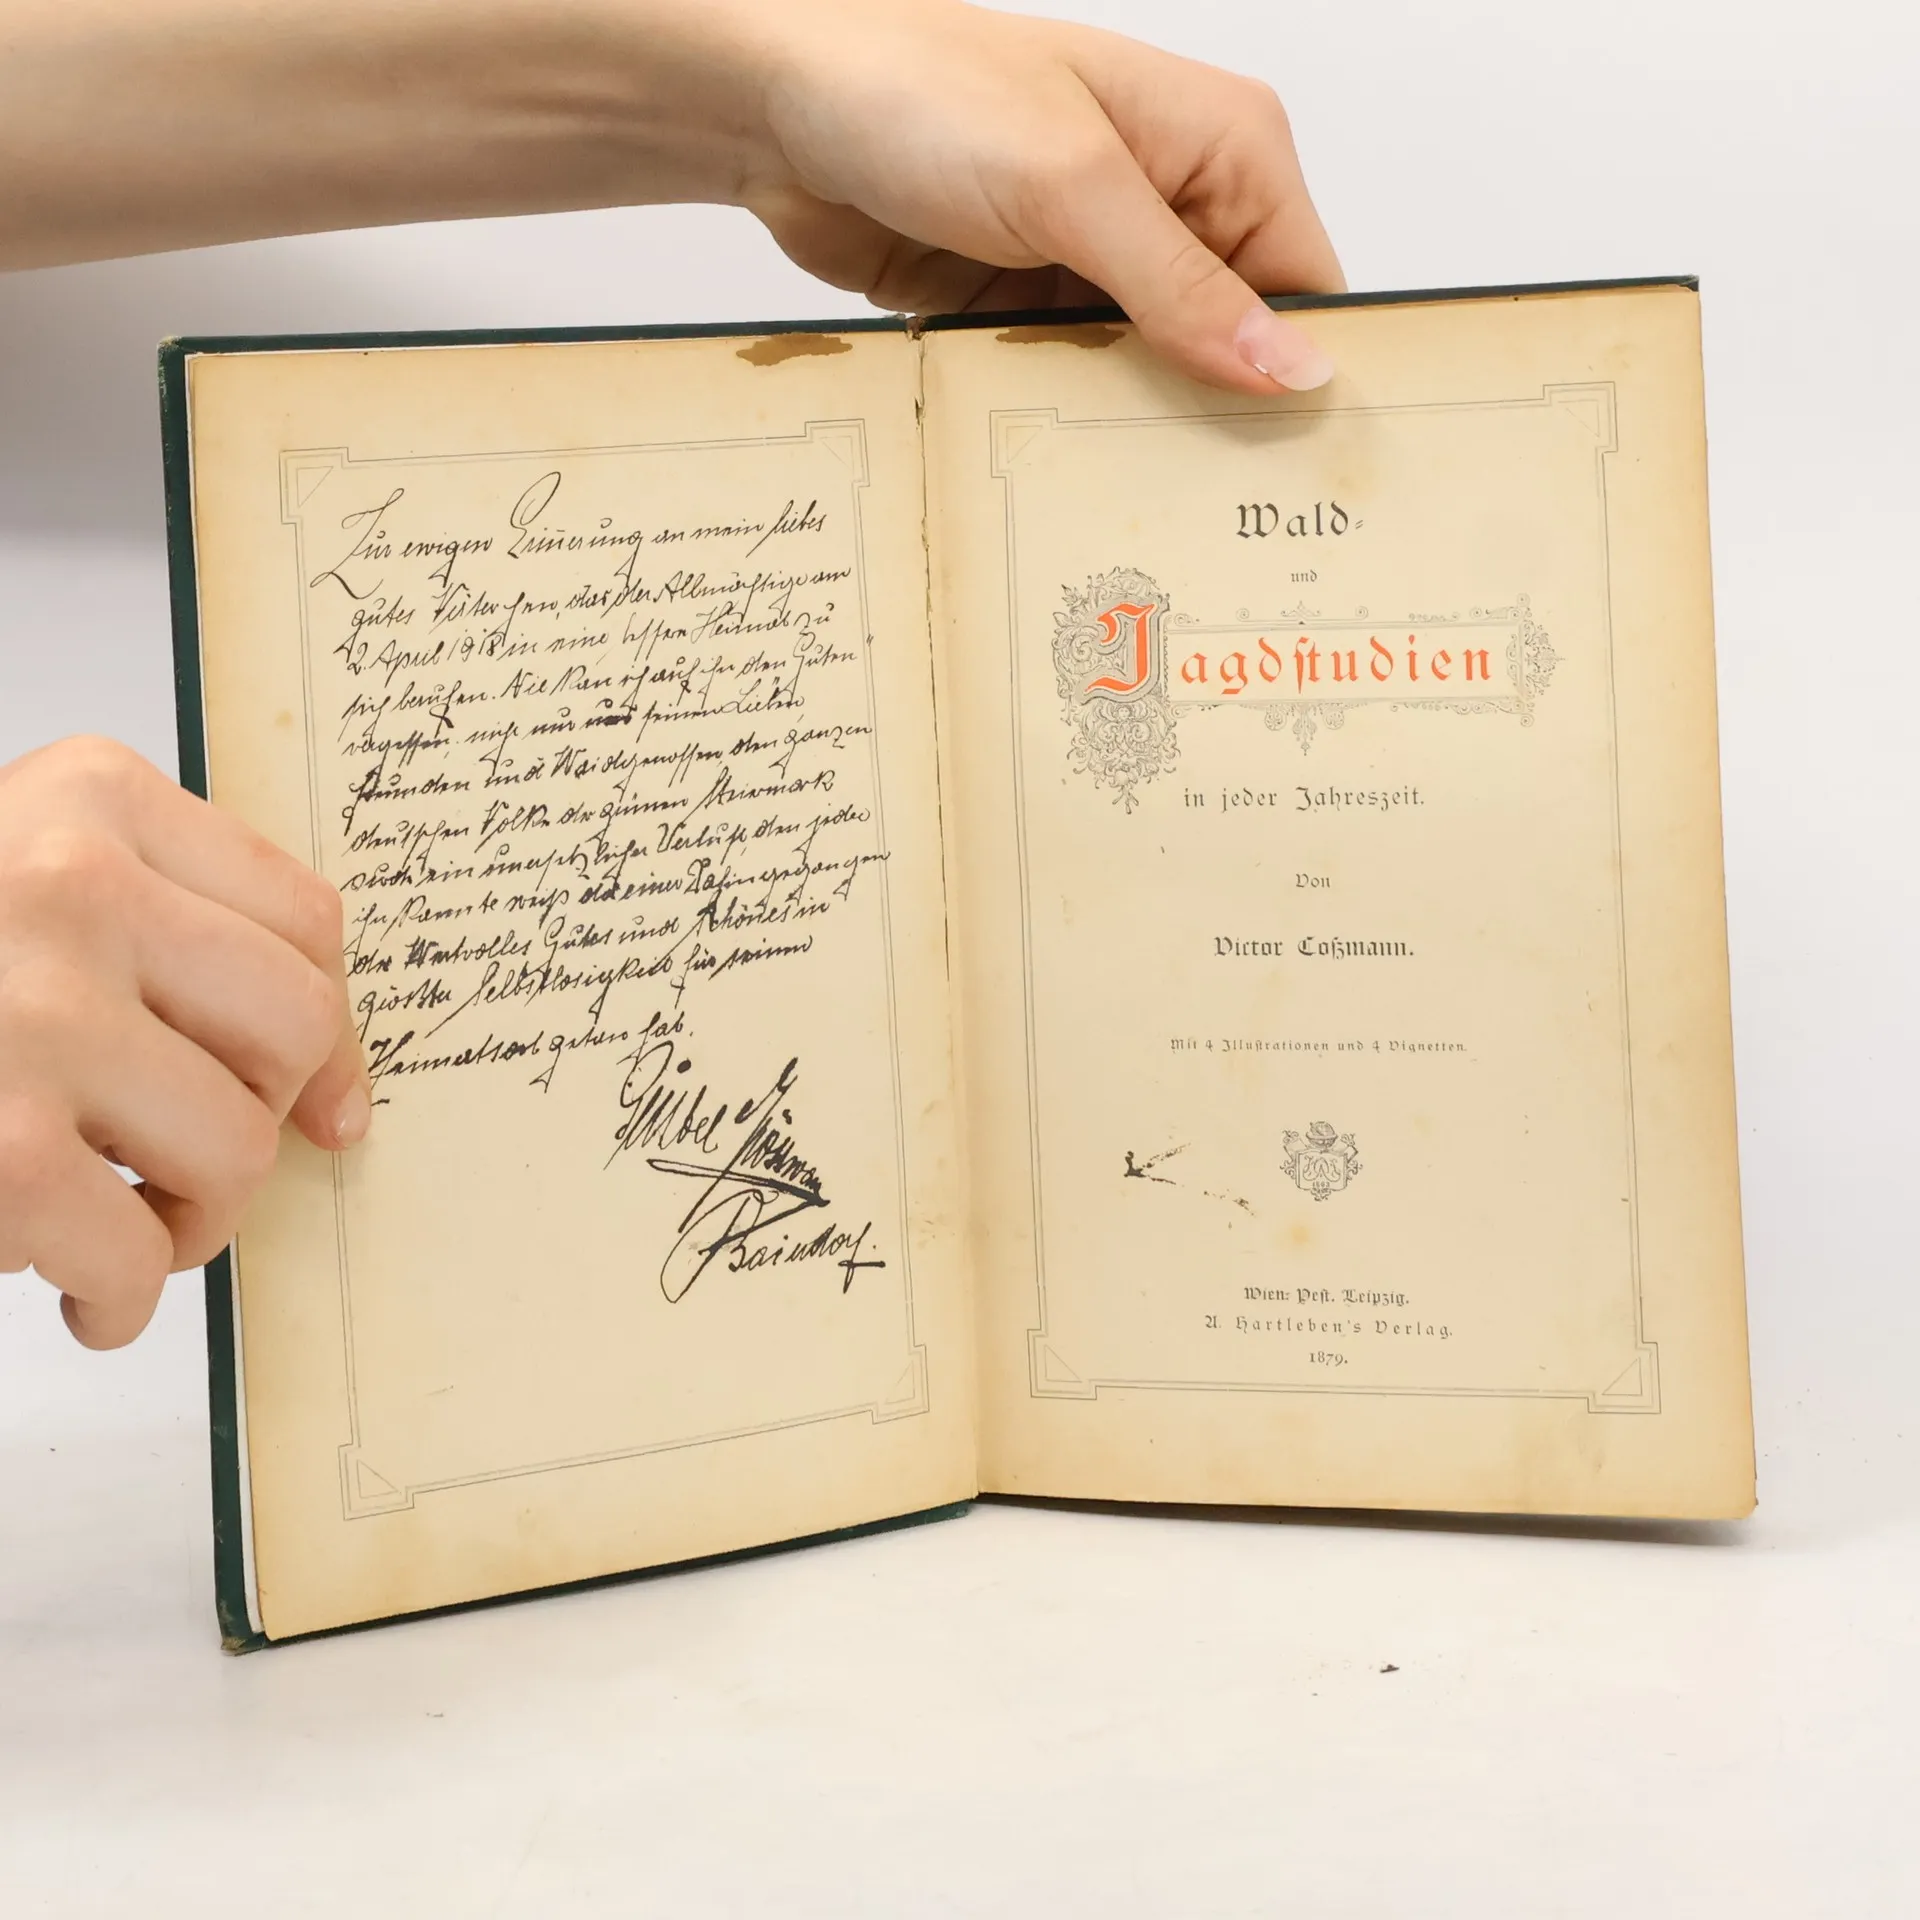 Zur ewigen Erinnerung an mein liebes
gutes Väterchen, das der Allmächtige am
2. April 1918 in eine bessere Heimat zu
sich berufen. Nie kan ich auf ihn den "Guten"
vergessen, nicht nur uns seinen Lieben,
Freunden und Waidgenossen, den ganzen
deutschen Volke der grünen Steiermark
ein unersetzlicher Verlust, den jeder
ihn kannte weiß da einer Dahingegangen
der Wertvolles Gutes und Schönes in
größter Selbstlosigkeit für seinen
Heimatsort getan hat.
Baierdorf.
Wald-
und
Jagdstudien
in jeder Jahreszeit.
Von
Victor Coßmann.
Mit 4 Illustrationen und 4 Vignetten.
Wien. Pest. Leipzig.
A. Hartleben's Verlag.
1879.